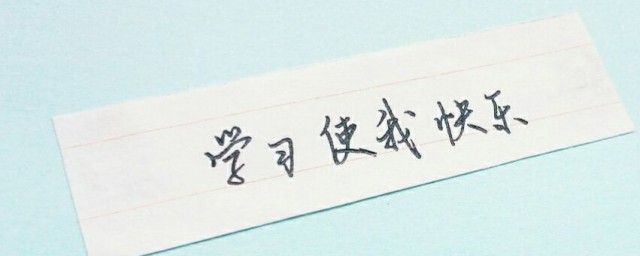 学习使我快乐